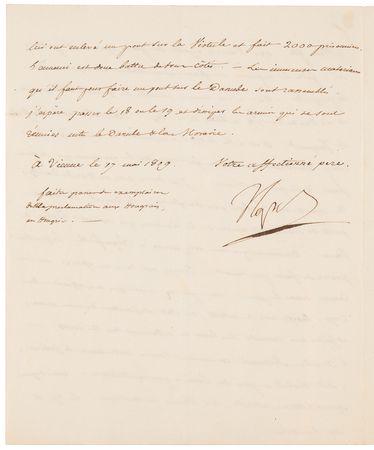 lui ont enlevé un pont sur la Vistule et fait 2000 prisonniers.
L'ennemi est donc battu de tous côtés — Les immenses matériaux
qu'il faut pour faire un pont sur le Danube sont rassemblés
j'espère passer le 18 ou le 19 et dissiper les armées qui se sont
réunies entre le Danube et la Moravie.
à Vienne le 17 mai 1809 Votre affectionné père.
faites passer des exemplaires
de la proclamation aux Hongrois,
en Hongrie. —
Nap